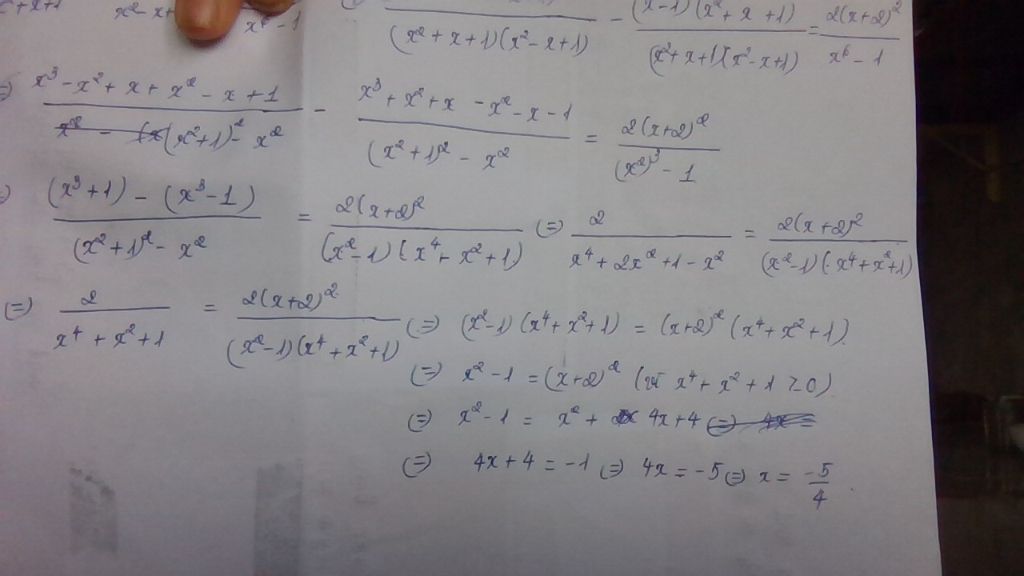 x² - x+ x⁶ - 1
/ (x² + x + 1)(x² - x + 1) - (x-1)(x² + x + 1) / (x² + x + 1)(x² - x + 1) = 2(x+2)² / x⁶ - 1
x³ - x² + x + x² - x + 1 / (x² + 1)² - x² - x³ + x² + x - x² - x - 1 / (x² + 1)² - x² = 2(x+2)² / (x²)³ - 1
(x³ + 1) - (x³ - 1) / (x² + 1)² - x² = 2(x+2)² / (x² - 1)(x⁴ + x² + 1) (=) 2 / x⁴ + 2x² + 1 - x² = 2(x+2)² / (x² - 1)(x⁴ + x² + 1)
(=) 2 / x⁴ + x² + 1 = 2(x+2)² / (x² - 1)(x⁴ + x² + 1) (=) (x² - 1)(x⁴ + x² + 1) = (x+2)² (x⁴ + x² + 1)
(=) x² - 1 = (x+2)² (vì x⁴ + x² + 1 > 0)
(=) x² - 1 = x² + 4x + 4
(=) 4x + 4 = -1 (=) 4x = -5 (=) x = -5/4